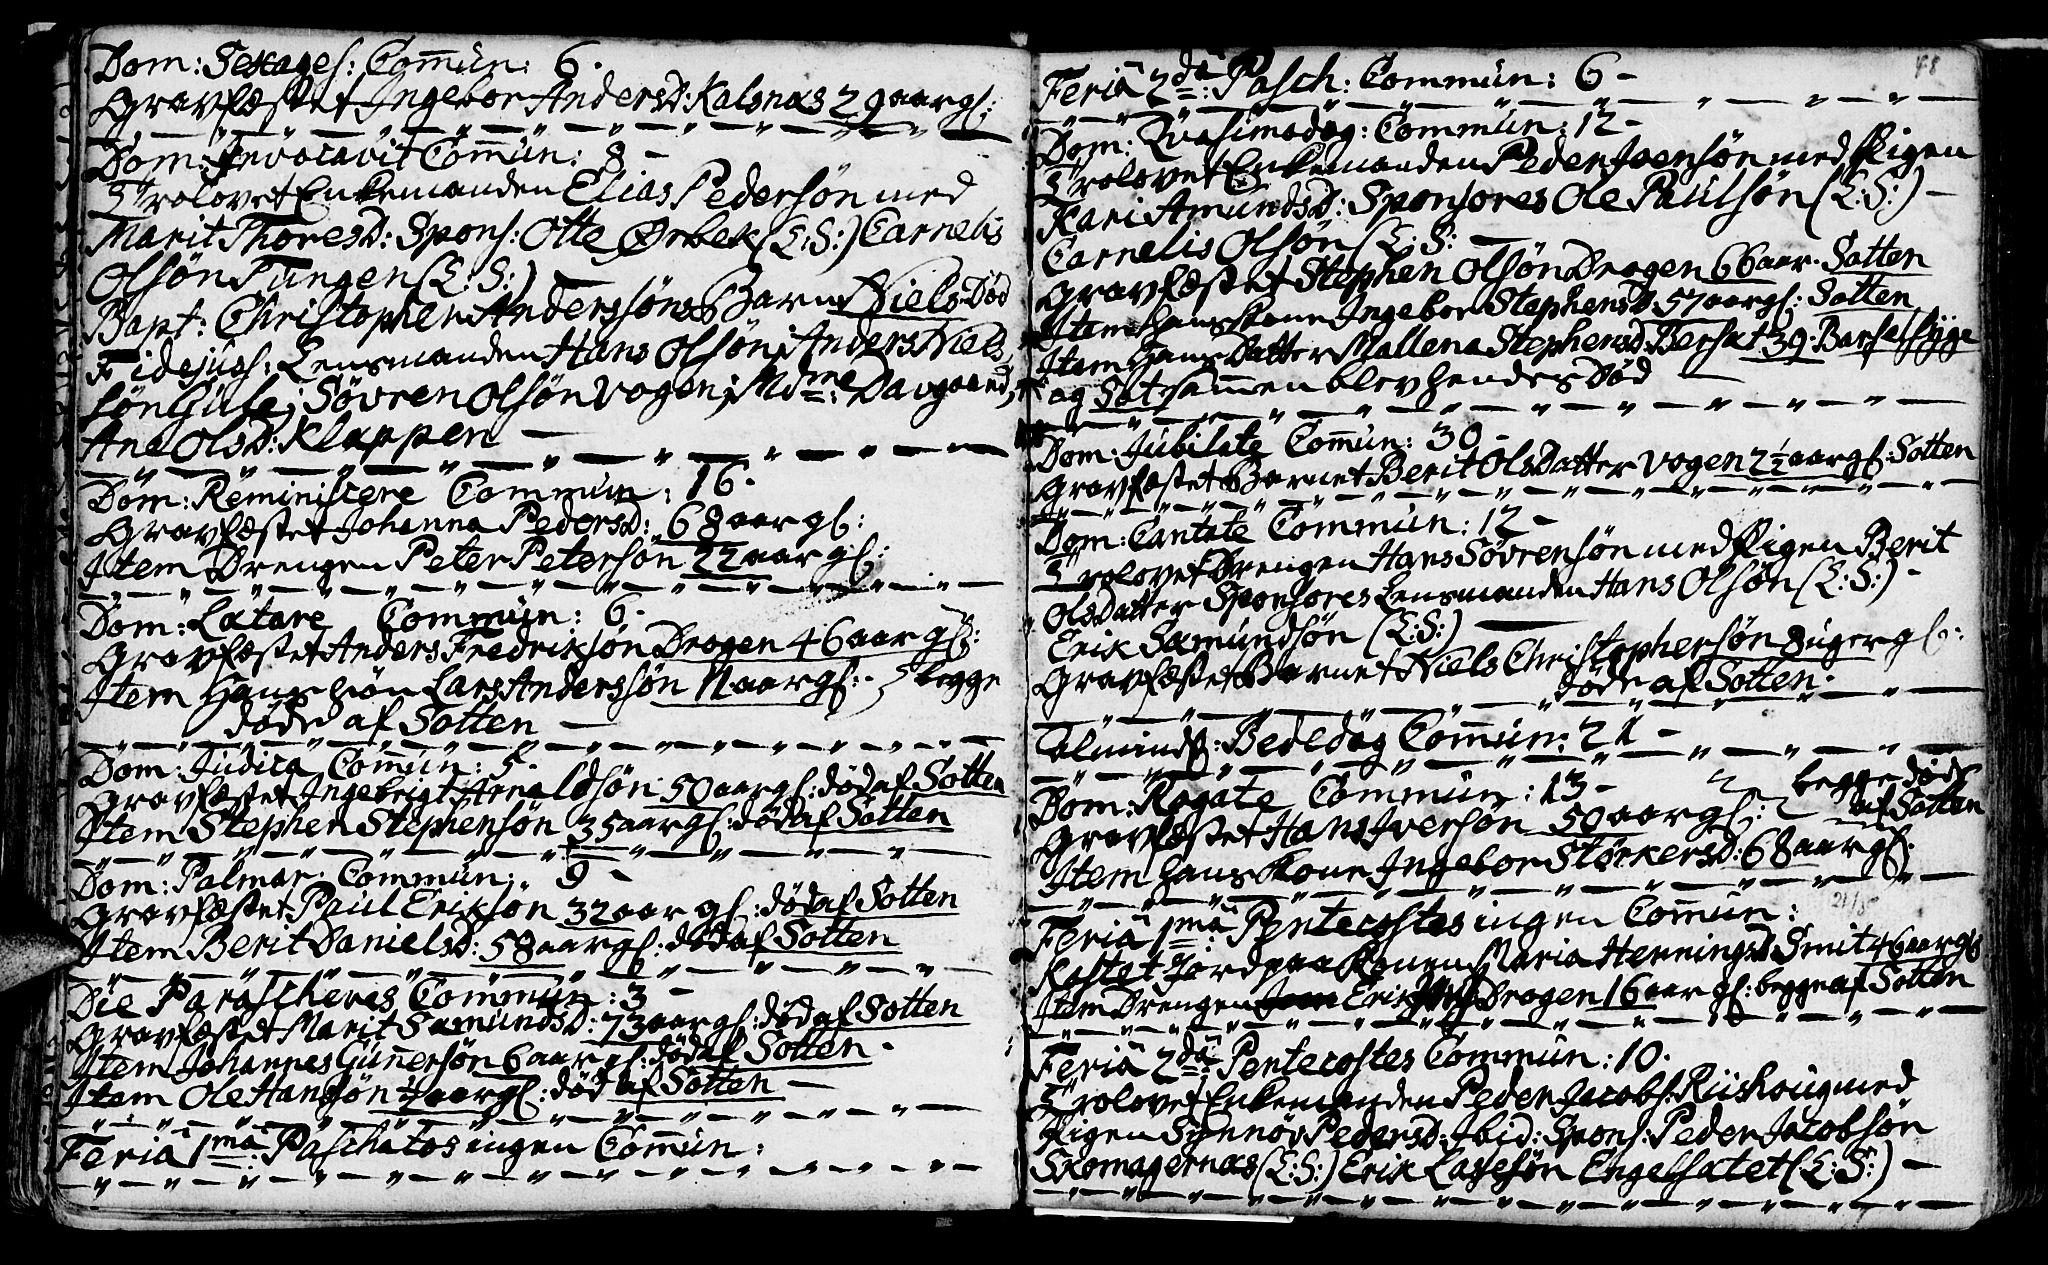 Dom: Sexages: Com̄un: 6.
Gravfæstet Ingebor Andersd: Kalsnæs 29 aar gl:
Dom: Invocavit Com̄un: 8 -
Trolovet Enkemanden Elias Pedersøn med
Marit Thoresd: Spons: Otte Ørbek (L:S:) Carnelis
Olsøn Tungen (L:S:) -
Bapt: Christopher Anderssøns Barn Niels Død
Fidejuss: Lensmanden Hans Olsøn; Anders Niels-
søn Gule; Søvren Olsøn Vogen; Mdme: Davgaard,
Ane Olsd: Klappen -
Dom: Reminiscere Commun: 16.
Gravfæstet Johanna Pedersd: 68 aar gl:
Item Drengen Peter Petersøn 22 aar gl:
Dom: Lætare Commun: 6.
Gravfæstet Anders Fredriksøn Drogen 46 aar gl:
Item Hans Søn Lars Anderssøn 11 aar gl: begge
døde af Sotten -
Dom: Judica Com̄un: 5.
Gravfæstet Ingebrigt Arnoldsøn 50 aar gl: død af Sotten
Item Stephen Stephensøn 35 aar gl: død af Sotten
Dom: Palmar: Commun: 9 -
Gravfæstet Paul Eriksøn 32 aar gl: død af Sotten
Item Berit Danielsd: 58 aar gl: død af Sotten
Die Parascheves Commun: 3 -
Gravfæstet Marit Samundsd: 73 aar gl: død af Sotten
Item Johannes Gun̄ersøn 6 aar gl: død af Sotten.
Item Ole Hansøn ½ aar gl: død af Sotten -
Feria 1ma: Paschatos ingen Com̄un:
48
Feria 2da: Pasch: Commun: 6 -
Dom: Qvasimodog: Commun: 12 -
Trolovet Enkemanden Peder Joensøn med Pigen
Kari Amundsd: Sponsores Ole Paulsøn (L:S:) -
Carnelis Olsøn (L:S: -
Gravfæstet Stephen Olsøn Drogen 66 aar. Sotten
Item Hans Kone Ingebor Stephensd: 57 aar gl: Sotten
Item Hans Datter Mallena Stephensd: Bersæt 39. Barselsyge
og Sot sam̄en blev hendes Død -
Dom: Jubilate Com̄un: 30 -
Gravfæstet Barnet Berit Olsdatter Vogen 2½ aar gl: Sotten
Dom: Cantate Commun: 12 -
Trolovet Drengen Hans Søvrensøn med Pigen Berit
Olsdatter Sponsores Lensmanden Hans Olsøn (L:S:) -
Erik Samundsøn (L:S:) -
Gravfæstet Barnet Niels Christophersøn 8 uger gl:
døde af Sotten.
Almind: Bededag Com̄un: 21 -
Dom: Rogate Commun: 13 -
begge døde
Gravfæstet Hans Iversøn 50 aar gl: af Sotten
Item hans Kone Ingebor Størkersd: 68 aar gl.
21/5
Feria 1ma: Pentecostes ingen Com̄un:
Kastet Jord paa Konen Maria Hennings Smit 46 aar gl:
Item Drengen Erik Drogen 16 aar gl: begge af Sotten
Feria 2da: Pentecostes Commun: 10.
Trolovet Enkemanden Peder Jacobs: Riishoug med
Pigen Synnøv Pedersd: Ibid: Spons: Peder Jacobsøn
Skomagernæs (L:S:) Erik Lassesøn Engelsætet (L:S:) -